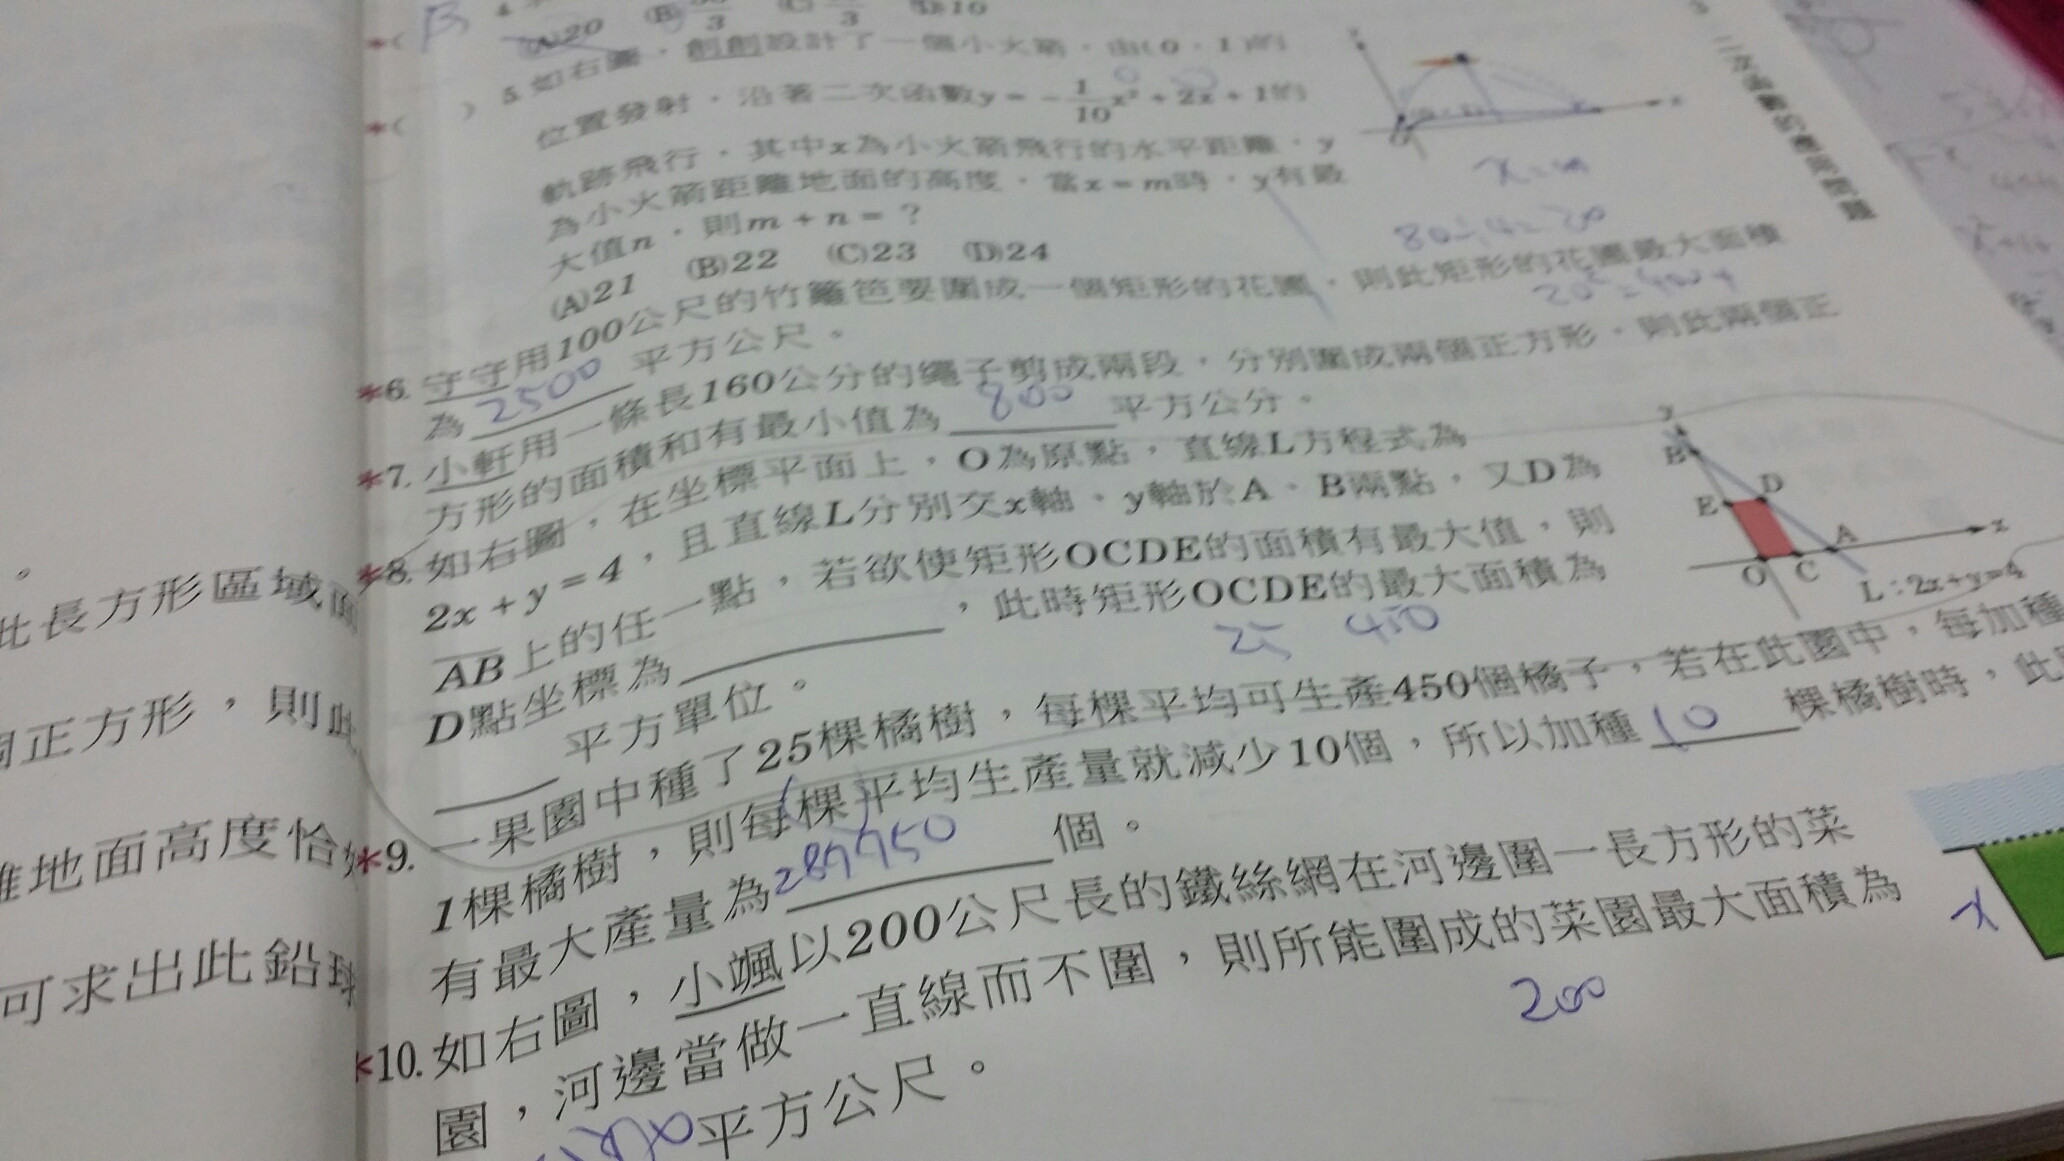 (A)20 (B) (C) (D)10
5.如右圖，創創設計了一個小火箭，由(0，1)的
位置發射，沿著二次函數y=-1/10x²+2x+1的
軌跡飛行，其中x為小火箭飛行的水平距離，y
為小火箭距離地面的高度，當x=m時，y有最
大值n，則m+n=？
(A)21 (B)22 (C)23 (D)24
x=m
80÷4=20
*6.守守用100公尺的竹籬笆要圍成一個矩形的花園，則此矩形的花園最大面積
為2500平方公尺。
*7.小軒用一條長160公分的繩子剪成兩段，分別圍成兩個正方形，則此兩個正
方形的面積和有最小值為800平方公分。
*8.如右圖，在坐標平面上，O為原點，直線L方程式為
2x+y=4，且直線L分別交x軸、y軸於A、B兩點，又D為
AB上的任一點，若欲使矩形OCDE的面積有最大值，則
D點坐標為 ，此時矩形OCDE的最大面積為
平方單位。
y
B
E D
A x
O C
L：2x+y=4
25 450
*9.一果園中種了25棵橘樹，每棵平均可生產450個橘子，若在此園中，每加種
1棵橘樹，則每棵平均生產量就減少10個，所以加種10棵橘樹時，此
有最大產量為 個。
*10.如右圖，小颯以200公尺長的鐵絲網在河邊圍一長方形的菜
園，河邊當做一直線而不圍，則所能圍成的菜園最大面積為
平方公尺。
200
x
。
此長方形區域
正方形，則此
離地面高度恰
可求出此鉛球